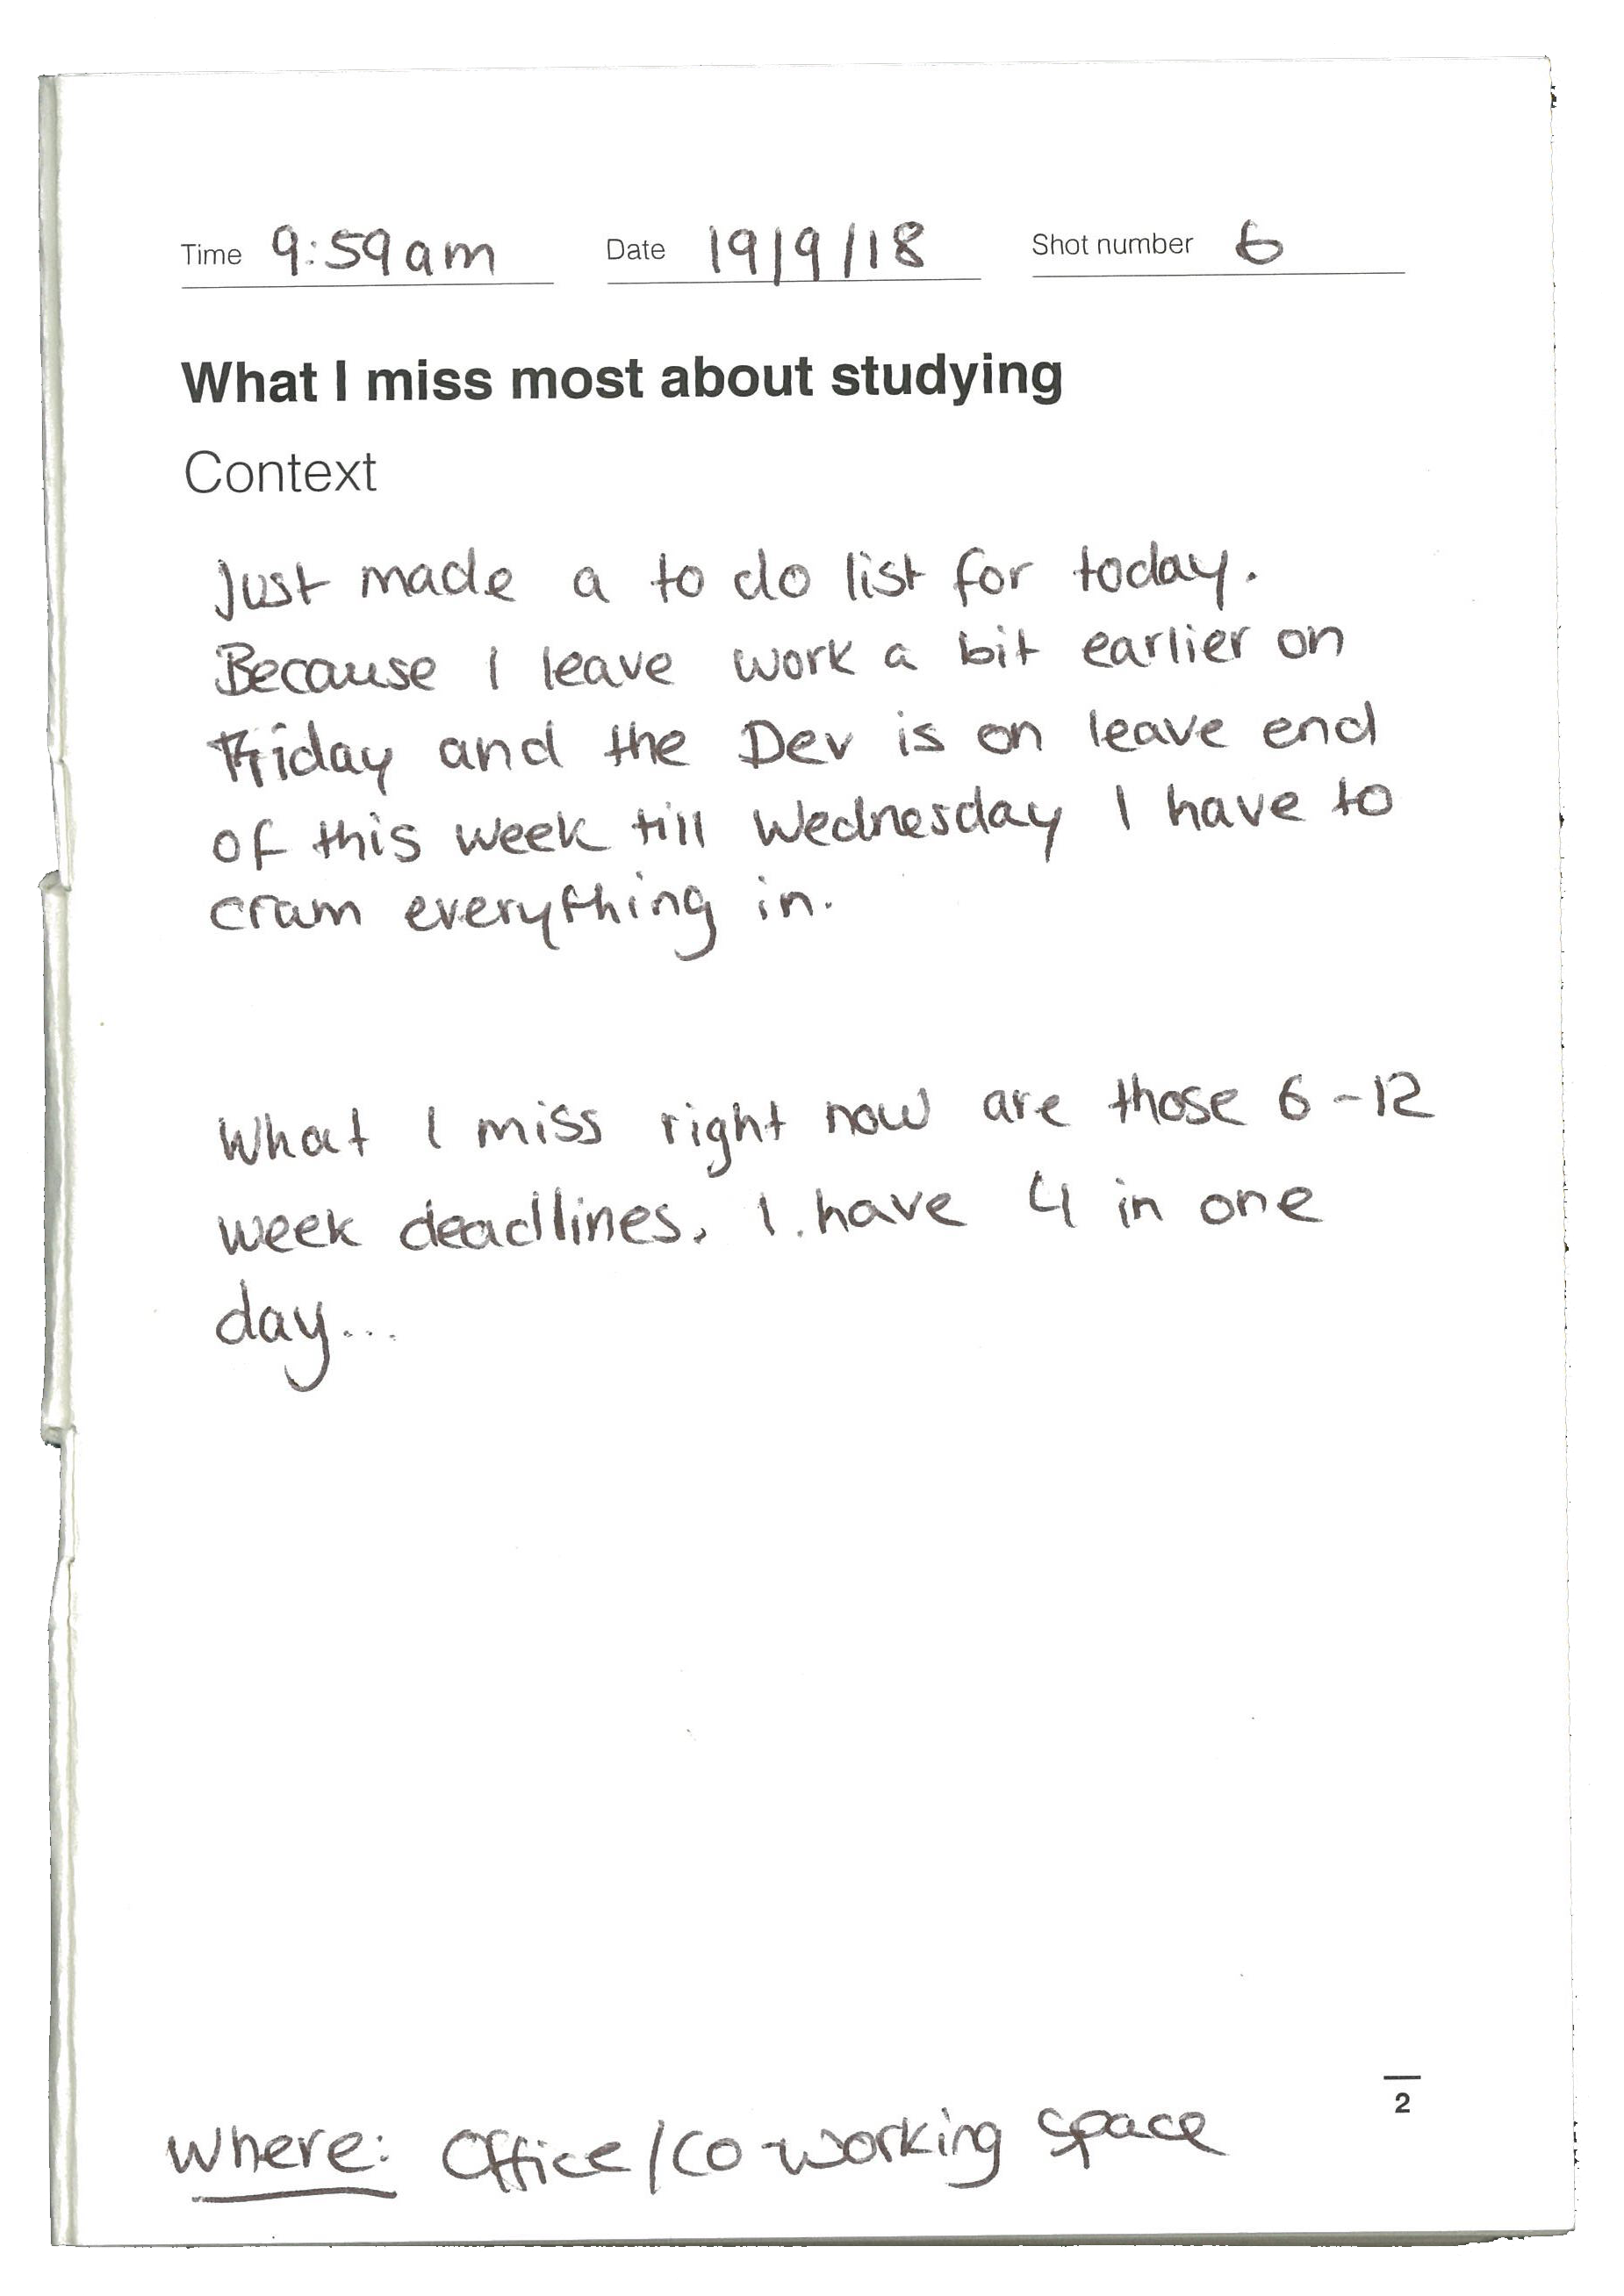 Time 9:59am Date 19/9/18 Shot number 6
What I miss most about studying
Context
Just made a to do list for today.
Because I leave work a bit earlier on
Friday and the Dev is on leave end
of this week till Wednesday I have to
cram everything in.
What I miss right now are those 6-12
week deadlines. I have 4 in one
day...
2
Where: Office/Co-working space